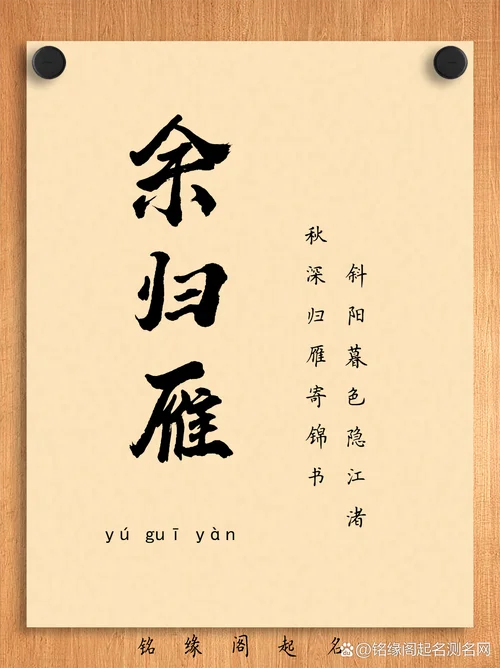 余归雁
yú guī yàn
斜阳暮色隐江渚
秋深归雁寄锦书
铭缘阁起名
@铭缘阁起名测名网